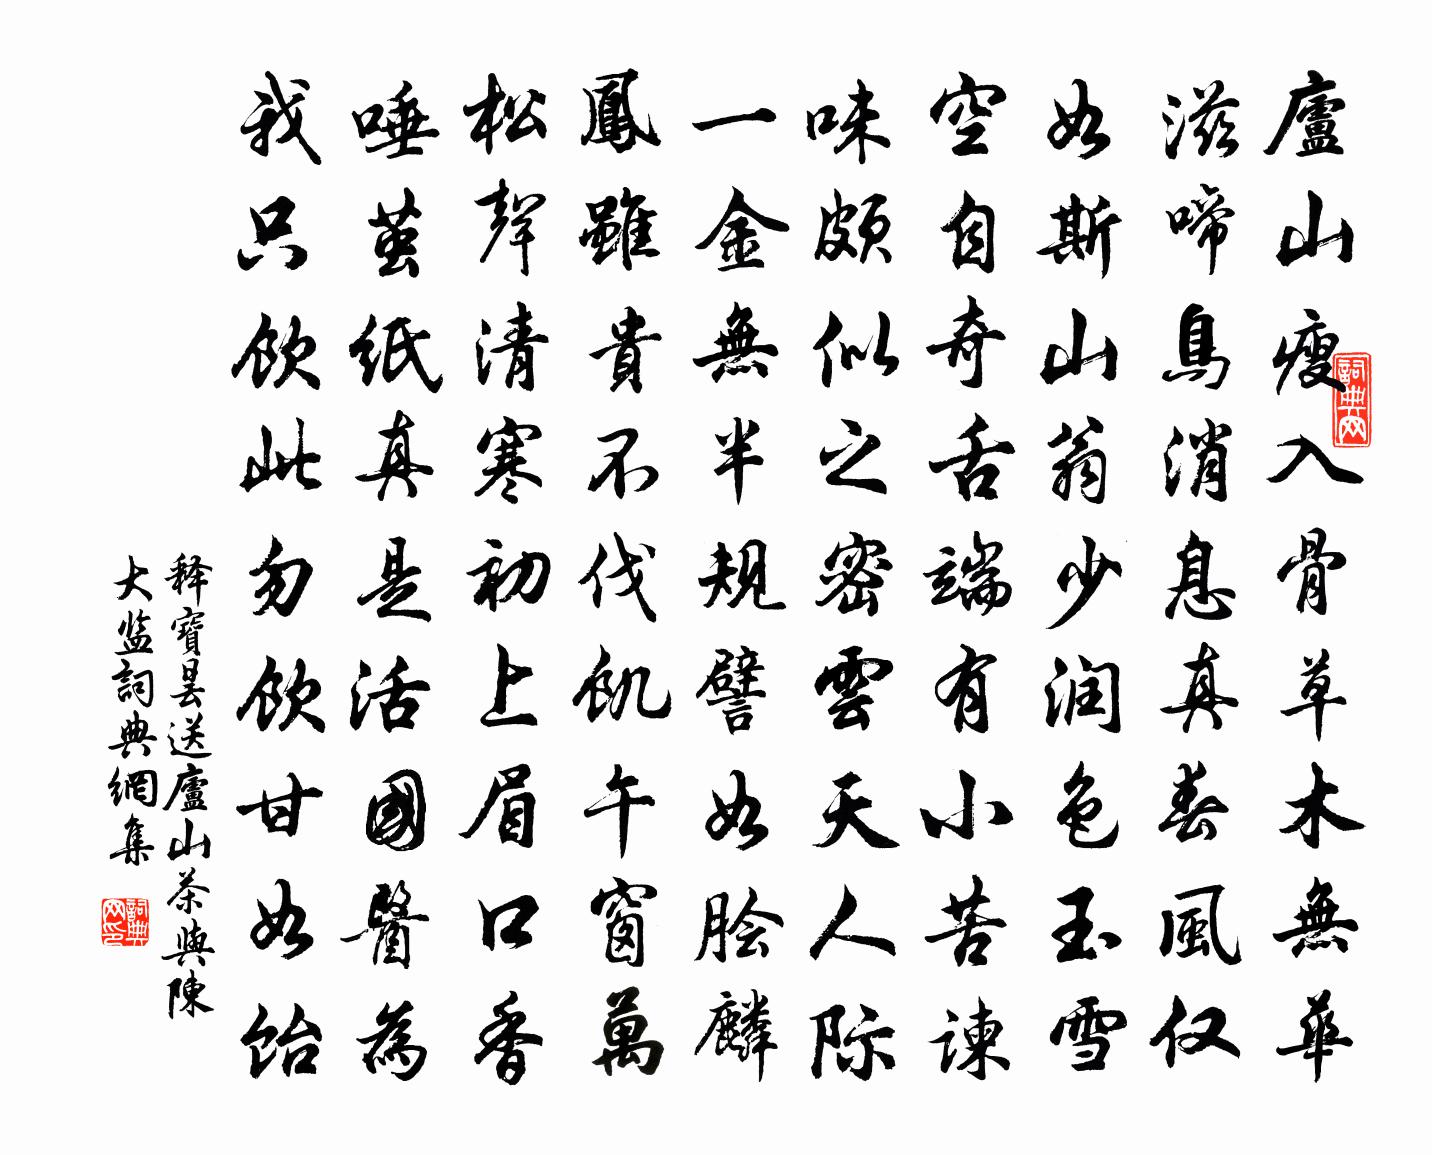 廬山瘦入骨草木無華
滋啼鳥消息真春風仅
如斯山翁少润色玉雪
空自奇舌端有小苦谏
味頗似之密雲天人际
一金無半規譬如脍麟
鳳雖貴不伐飢午窗萬
松聲清寒初上眉口香
唾茧纸真是活國醫為
我只饮此勿饮甘如饴
释寶昙送廬山茶與陳
大监詞典網集
詞典网
詞典网印